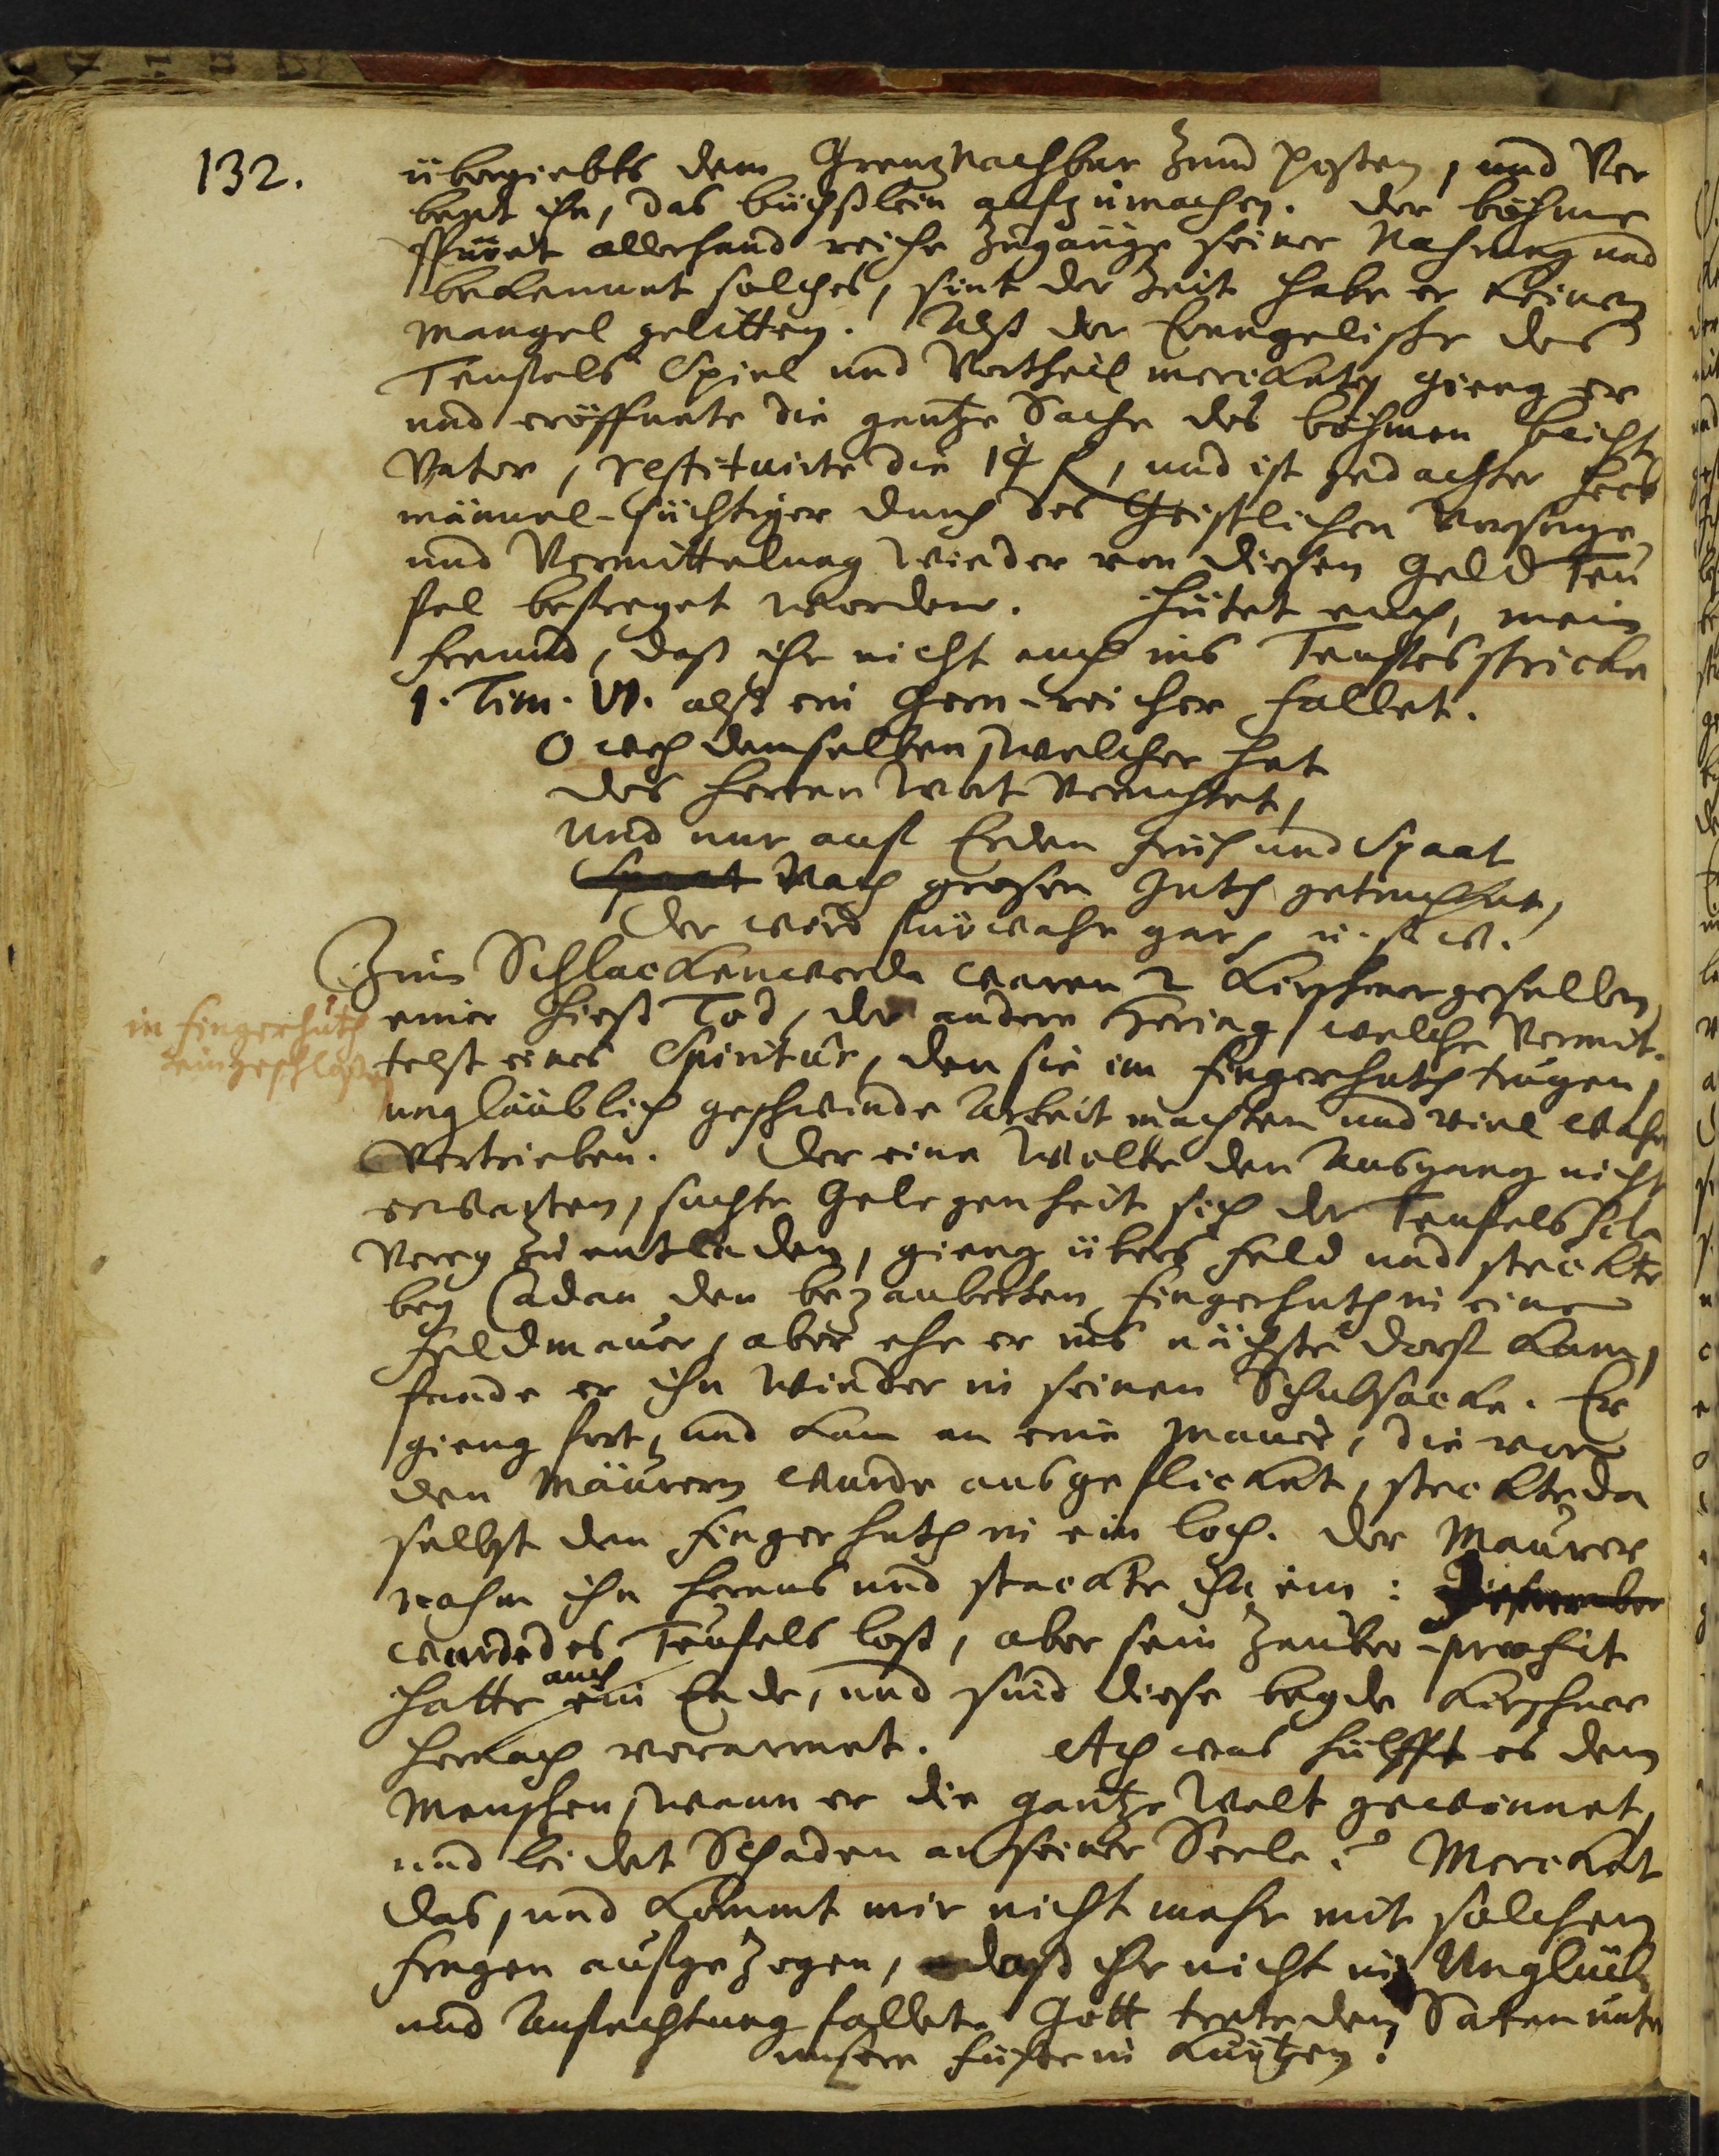 132.
übergiebts dem Grentz Nachbar zum posten, und Ver
beut ihn, das büchßlein aufzumachen. Der böhme
spüret allerhand reiche zugänge seiner Nahrung und
bekennet solches, sint der Zeit habe er keinen
mangel gelitten. Alß der Evangelische des
Teufels Spiel und Vortheil merckete, gieng er
und eröffnete die gantze Sache des böhmen beicht
Vater, restituirte die 14 f, und ist gedachter Heck
männel-süchtiger durch des Geistlichen Vorsorge
und Vermittelung wieder von diesen Geld Teu
fel befreyet worden. Hütet euch, mein
freund, daß ihr nicht auch ins Teufels stricke
1. Tim. VI. alß ein Gern-reicher fallet.
O weh demselben, welcher hat
des Herren Wort verachtet,
und nur auf Erden früh und Spaat
Nach grosen Guth getrachtet,
Der wird fürwahr gar, u. s. w.
Zun Schlackenwerda waren 2 Kirschnergesellen,
einer hieß Tod, der andere Hering, welche vermit-
in fingerhuth
eingeschloßen
telst eines Spiritus, den sie im fingerhuth trugen,
ungläublich geschwinde Arbeit machten und viel Wahr
vertrieben. Der eine Wolte den Ausgang nicht
erwarten, suchte Gelegenheit sich der Teufels Scla
verey zu entladen, gieng übers feld und steckte
bey Cadan den bezauberten fingerhuth in eine
feldmauer, aber ehe er ins nächste Dorf kam,
fande er ihn wieder in seinen Schubsacke. Er
gieng fort, und kam an eine mauer, die von
den Mäurern wurde ausgeflicket, steckte da
selbst den fingerhuth in ein loch. Der Maurer
nahm ihn heraus und steckte ihn ein:
wurde des Teufels loß, aber sein Zauber-profit
hatte auch ein Ende, und sind diese beyde Kirschner
hernach verarmet. Ach was hülfft es dem
Menschen, wann er die gantze Welt gewinnet,
und leidet Schaden an seiner Seele? Mercket
das, und kommt mir nicht mehr mit solchen
fragen aufgezogen, daß ihr nicht in Unglück
und Anfechtung fallet. Gott trete den Satan unter
unsere füße in kurtzen!